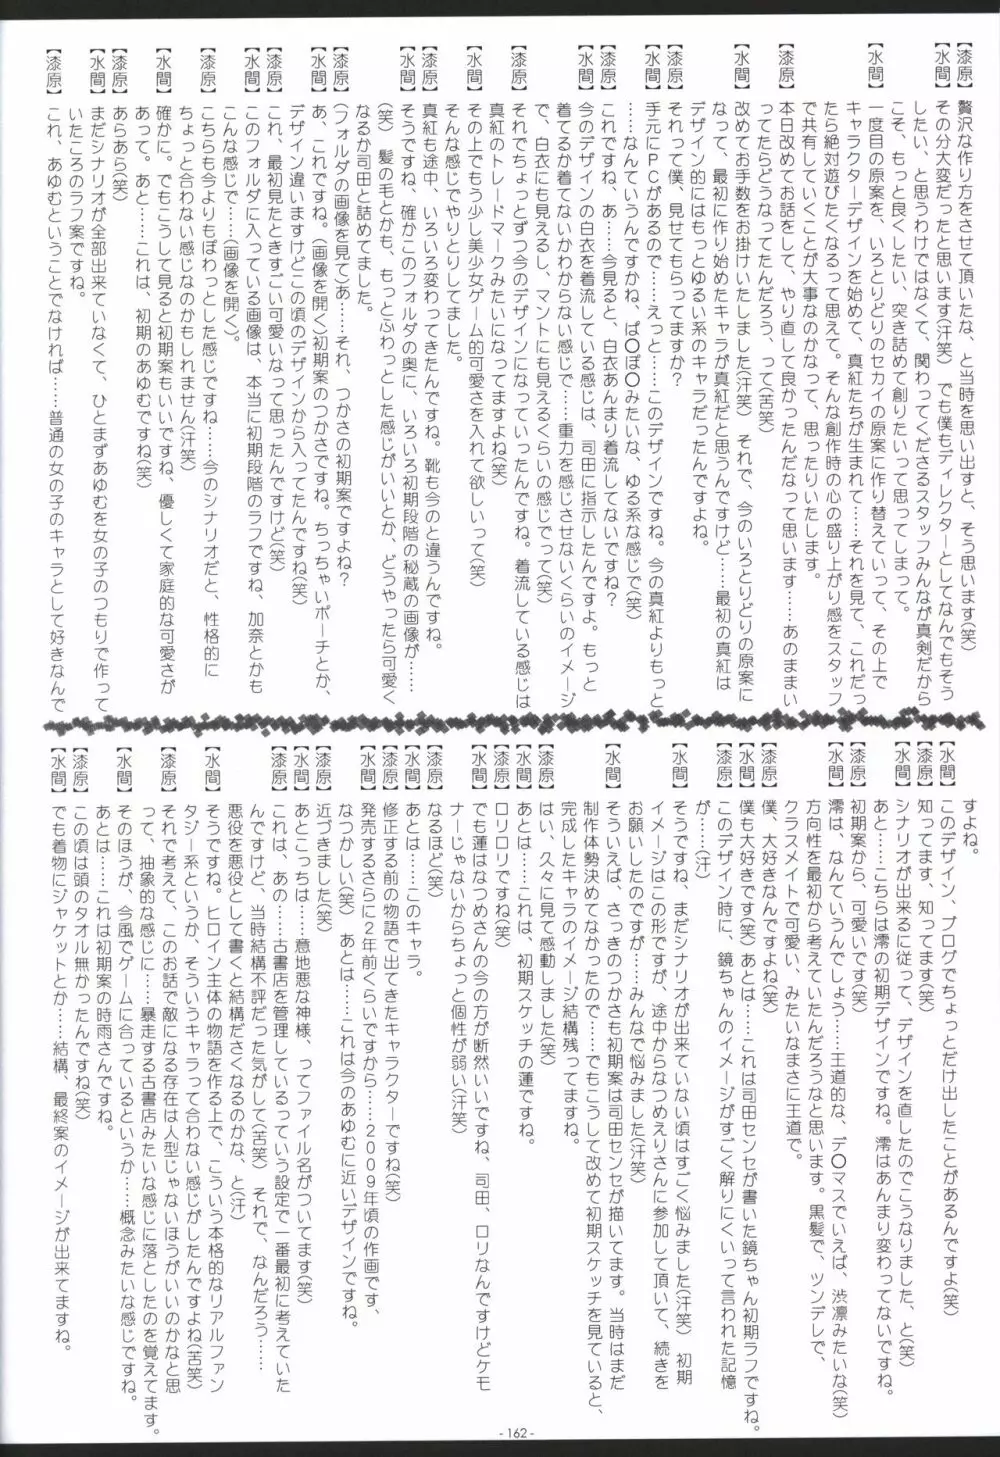 【漆原】 贅沢な作り方をさせて頂いたな、と当時を思い出すと、そう思います(笑)
【水間】 その分大変だったと思います(汗笑) でも僕もディレクターとしてなんでもそう
したい、と思うわけではなくて、関わってくださるスタッフみんなが真剣だから
こそ、もっと良くしたい、突き詰めて創りたいって思ってしまって。
【水間】 一度目の原案を、いろとりどりのセカイの原案に作り替えていって、その上で
キャラクターデザインを始めて、真紅たちが生まれて……それを見て、これだっ
たら絶対遊びたくなるって思えて。そんな創作時の心の盛り上がり感をスタッフ
で共有していくことが大事なのかなって、思ったりいたします。
【漆原】 本日改めてお話をして、やり直して良かったんだなって思います……あのままい
ってたらどうなってたんだろう、って(苦笑)
【水間】 改めてお手数をお掛けいたしました(汗笑) それで、今のいろとりどりの原案に
なって、最初に作り始めたキャラが真紅だと思うんですけど……最初の真紅は
デザイン的にはもっとゆるい系のキャラだったんですよね。
【漆原】 それって僕、見せてもらってますか?
【水間】 手元にPCがあるので……えっと……このデザインですね。今の真紅よりもっと
……なんていうんですかね、ぱ〇ぽ〇みたいな、ゆる系な感じで(笑)
【漆原】 これですね、あ……今見ると、白衣あんまり着流してないですね?
【水間】 今のデザインの白衣を着流している感じは、司田に指示したんですよ。もっと
着てるか着てないかわからない感じで……重力を感じさせないくらいのイメージ
で、白衣にも見えるし、マントにも見えるくらいの感じでって(笑)
【漆原】 それでちょっとずつ今のデザインになっていったんですね。着流している感じは
真紅のトレードマークみたいになってますよね(笑)
【水間】 その上でもう少し美少女ゲーム的可愛さを入れて欲しいって(笑)
そんな感じでやりとりしてました。
【漆原】 真紅も途中、いろいろ変わってきたんですね。靴も今のと違うんですね。
【水間】 そうですね、確かこのフォルダの奥に、いろいろ初期段階の秘蔵の画像が……
(笑) 髪の毛とかも、もっとふわっとした感じがいいとか、どうやったら可愛く
なるか司田と詰めてました。
【漆原】 (フォルダの画像を見て)あ……それ、つかさの初期案ですよね?
【水間】 あ、これですね。(画像を開く)初期案のつかさですね。ちっちゃいポーチとか、
デザイン違いますけどこの頃のデザインから入ってたんですね(笑)
【漆原】 これ、最初見たときすごい可愛いなって思ったんですけど(笑)
【水間】 このフォルダに入っている画像は、本当に初期段階のラフですね、加奈とかも
こんな感じで……(画像を開く)。
【漆原】 こちらも今よりもぽわっとした感じですね……今のシナリオだと、性格的に
ちょっと合わない感じなのかもしれません(汗笑)
【水間】 確かに。でもこうして見ると初期案もいいですね、優しくて家庭的な可愛さが
あって。あと……これは、初期のあゆむですね(笑)
【漆原】 あらあら(笑)
【水間】 まだシナリオが全部出来ていなくて、ひとまずあゆむを女の子のつもりで作って
いたころのラフ案ですね。
【漆原】 これ、あゆむということでなければ……普通の女の子のキャラとして好きなんで
すよね。
【水間】 このデザイン、ブログでちょっとだけ出したことがあるんですよ(笑)
【漆原】 知ってます、知ってます(笑)
【水間】 シナリオが出来るに従って、デザインを直したのでこうなりました、と(笑)
あと……こちらは澪の初期デザインですね。澪はあんまり変わってないですね。
【漆原】 初期案から、可愛いです(笑)
【水間】 澪は、なんていうんでしょう……王道的な、デ〇マスでいえば、渋凛みたいな(笑)
方向性を最初から考えていたんだろうなと思います。黒髪で、ツンデレで、
クラスメイトで可愛い、みたいなまさに王道で。
【漆原】 僕、大好きなんですよね(笑)
【水間】 僕も大好きです(笑)あとは……これは司田センセが書いた鏡ちゃん初期ラフですね。
【漆原】 このデザイン時に、鏡ちゃんのイメージがすごく解りにくいって言われた記憶
が……(汗)
【水間】 そうですね、まだシナリオが出来ていない頃はすごく悩みました(汗笑) 初期
イメージはこの形ですが、途中からなつめえりさんに参加して頂いて、続きを
お願いしたのですが……みんなで悩みました(汗笑)
【水間】 そういえば、さっきのつかさも初期案は司田センセが描いてます。当時はまだ
制作体勢決めてなかったので……でもこうして改めて初期スケッチを見ていると、
完成したキャラのイメージ結構残ってますね。
【漆原】 はい、久々に見て感動しました(笑)
【水間】 あとは……これは、初期スケッチの蓮ですね。
【漆原】 ロリロリですね(笑)
【水間】 でも蓮はなつめさんの今の方が断然いいですね、司田、ロリなんですけどケモ
ナーじゃないからちょっと個性が弱い(汗笑)
【漆原】 なるほど(笑)
【水間】 あとは……このキャラ。
【漆原】 修正する前の物語で出てきたキャラクターですね(笑)
【水間】 発売するさらに2年前くらいですから……2009年頃の作画です、
なつかしい(笑) あとは……これは今のあゆむに近いデザインですね。
【漆原】 近づきました(笑)
【水間】 あとこっちは……意地悪な神様、ってファイル名がついてます(笑)
【漆原】 これは、あの……古書店を管理しているっていう設定で一番最初に考えていた
んですけど、当時結構不評だった気がして(苦笑) それで、なんだろう……
悪役を悪役として書くと結構ださくなるのかな、と(汗)
【水間】 そうですね。ヒロイン主体の物語を作る上で、こういう本格的なリアルファン
タジー系というか、そういうキャラって合わない感じがしたんですよね(苦笑)
【漆原】 それで考えて、このお話で敵になる存在は人型じゃないほうがいいのかなと思
って、抽象的な感じに……暴走する古書店みたいな感じに落としたのを覚えてます。
【水間】 そのほうが、今風でゲームに合っているというか……概念みたいな感じですね。
あとは……これは初期案の時雨さんですね。
【漆原】 この頃は頭のタオル無かったんですね(笑)
【水間】 でも着物にジャケットとか……結構、最終案のイメージが出来てますね。
- 162 -